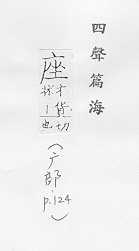 四聲篇海
座
才貨切
牀丨也
（广部
p.124）